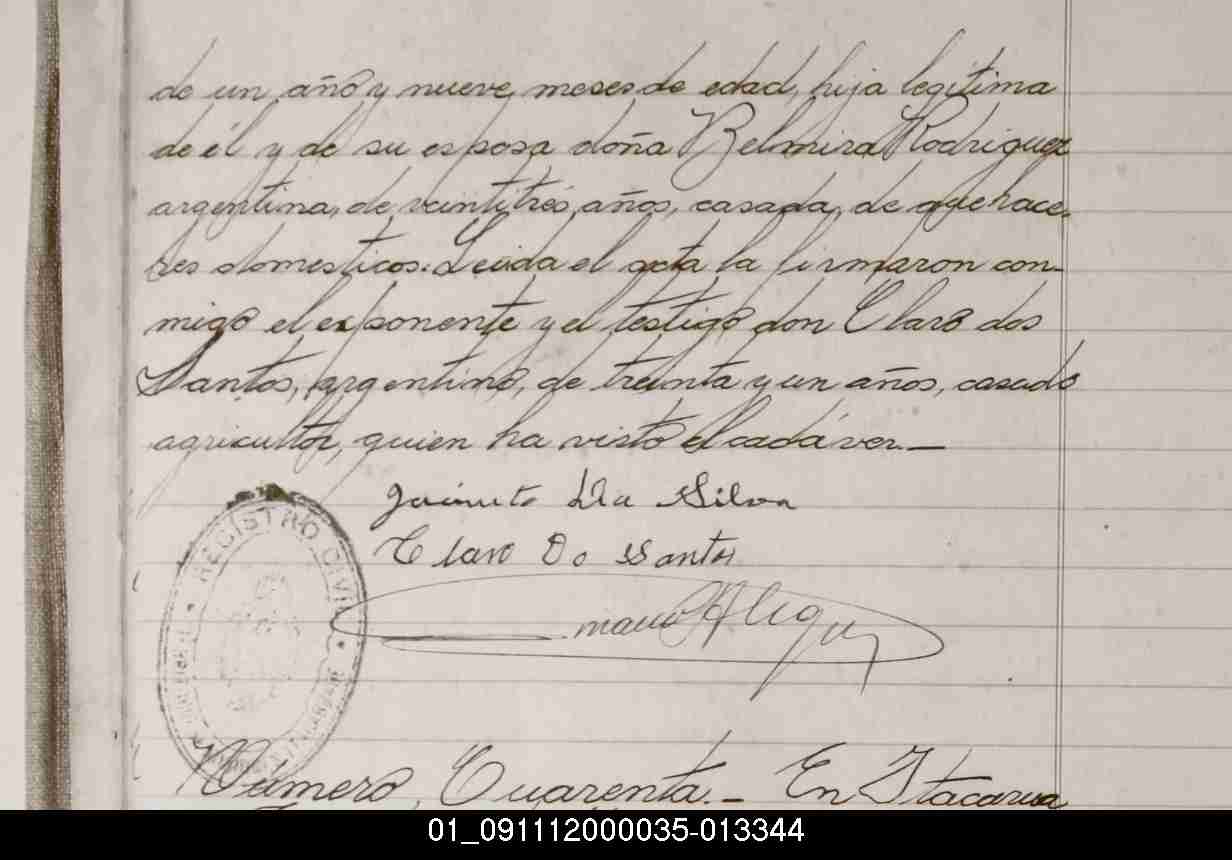 de un año y nueve meses de edad, hija legítima
de él y de su esposa doña Belmira Rodriguez
argentina, de veintitrés años, casada, de quehace-
res domesticos. Leida el acta la firmaron con-
migo el exponente y el testigo don Claro dos
Santos, argentino, de treinta y un años, casado
agricultor, quien ha visto el cadáver.—
Jacinto Da Silva
Claro Do Santos
REGISTRO CIVIL
Número, Cuarenta.— En Itacarua
01_091112000035-013344